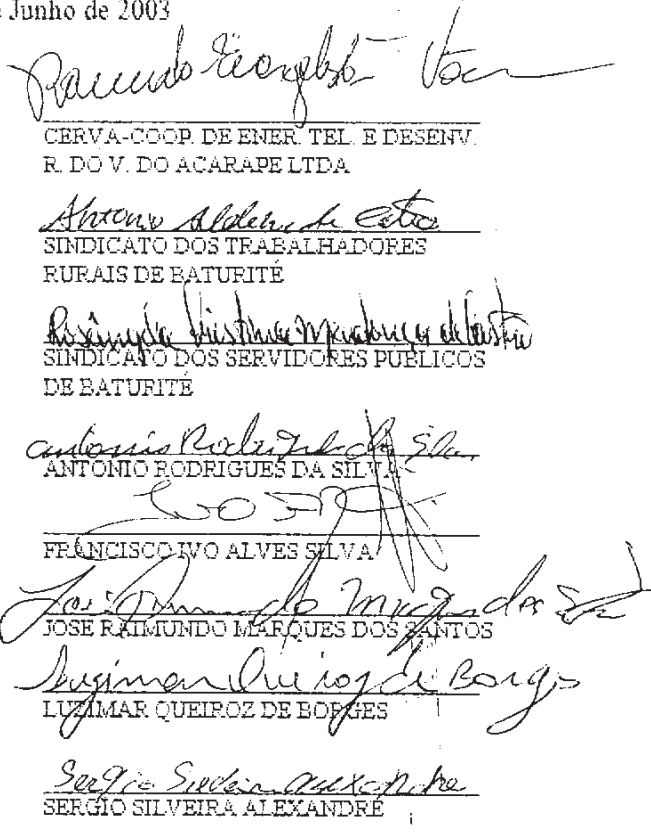 Junho de 2003
CERVA-COOP. DE ENER. TEL. E DESENV.
R. DO V. DO ACARAPE LTDA
Antonio de Castro
SINDICATO DOS TRABALHADORES
RURAIS DE BATURITÉ
Cristina Mendonça de Castro
SINDICATO DOS SERVIDORES PUBLICOS
DE BATURITÉ
Antonio Rodrigues da Silva
ANTONIO RODRIGUES DA SILVA
IVO
FRANCISCO IVO ALVES SILVA
José Raimundo Marques dos
JOSE RAIMUNDO MARQUES DOS SANTOS
Luzimar Queiroz de Borges
LUZIMAR QUEIROZ DE BORGES
Sergio Silveira Alexandre
SERGIO SILVEIRA ALEXANDRE